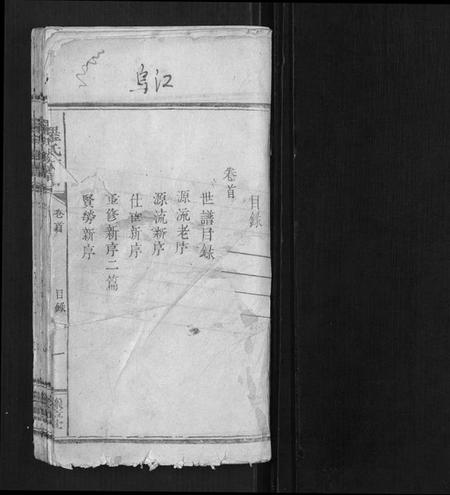 烏江
目錄
卷首
世譜目錄
源流老序
源流新序
仕宦新序
重修新序二篇
賢勞新序
卷首
目錄